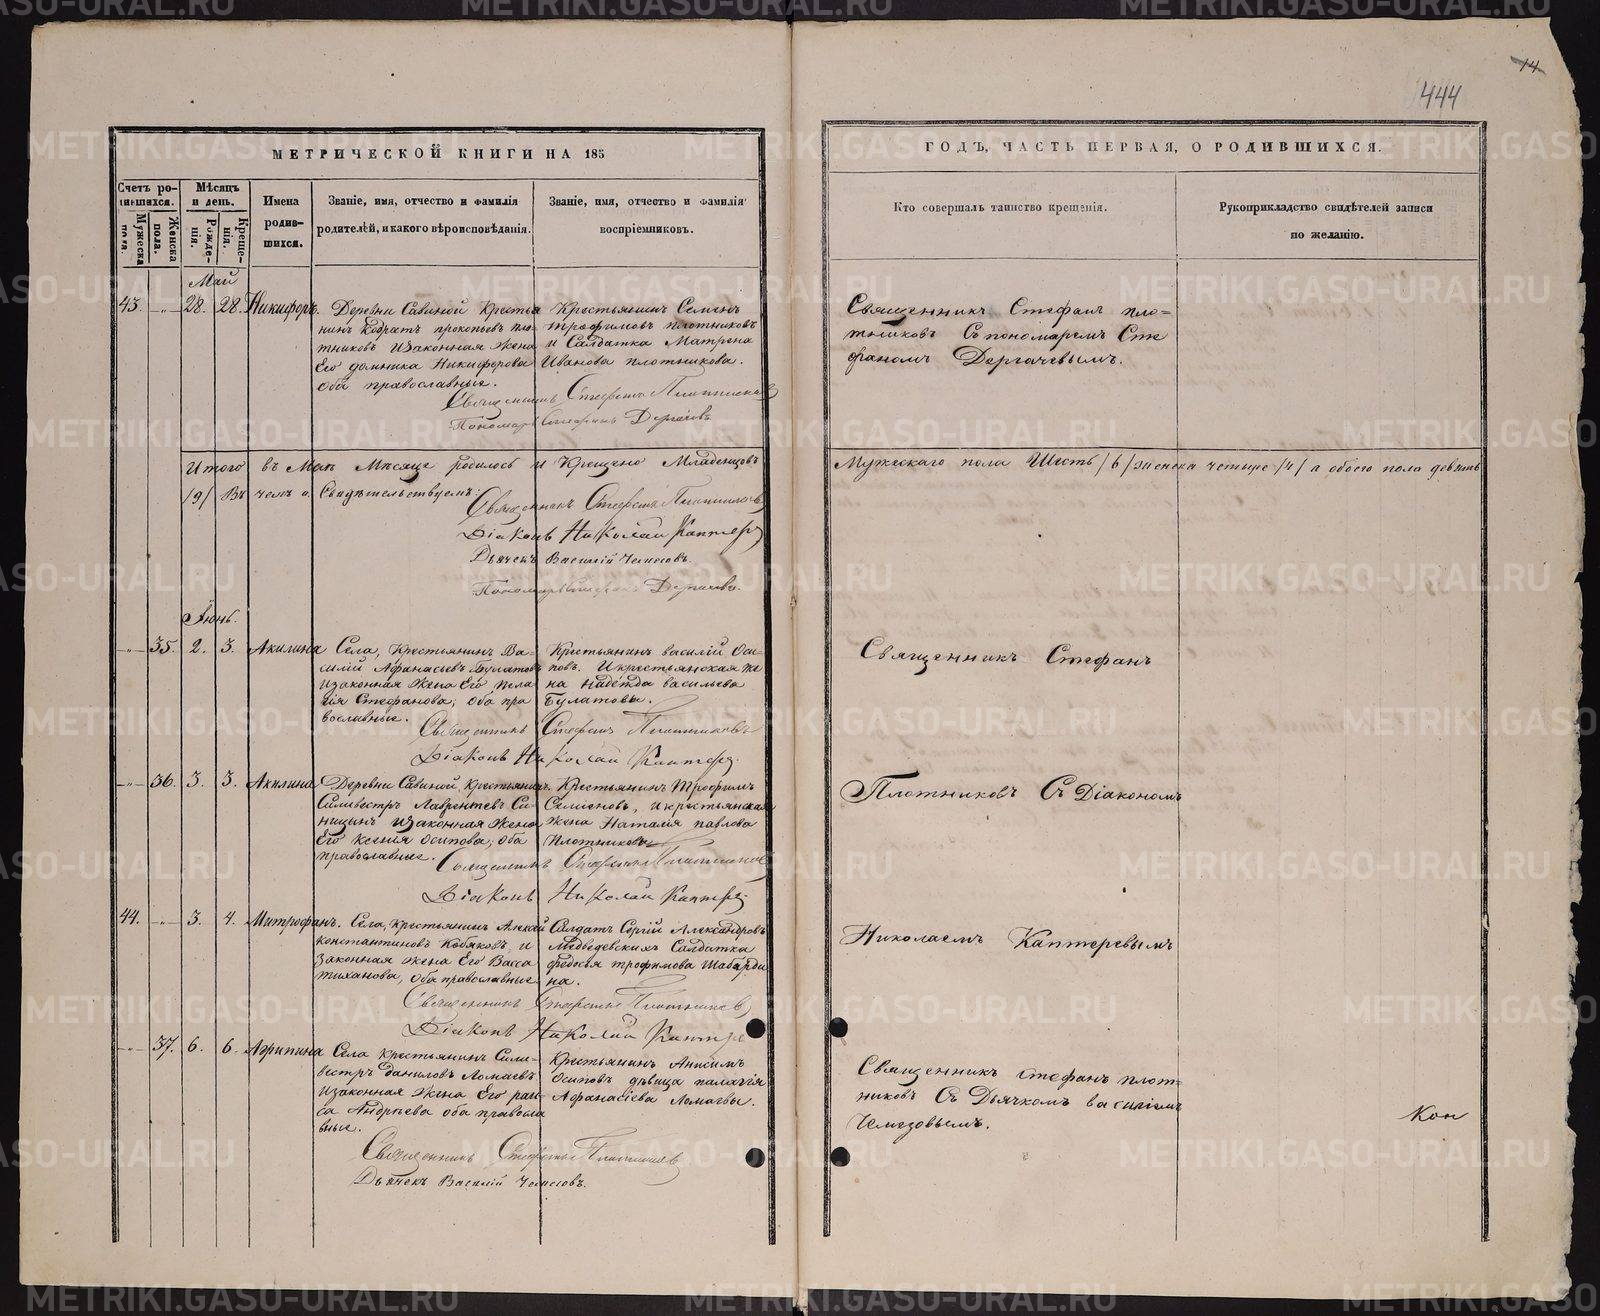 14
444
МЕТРИЧЕСКОЙ КНИГИ НА 185
ГОДЪ, ЧАСТЬ ПЕРВАЯ, О РОДИВШИХСЯ.
Счетъ родившихся.
Мужеска пола.
Женска пола.
Мѣсяцъ и день.
Рожденія.
Крещенія.
Имена родившихся.
Званіе, имя, отчество и фамилія родителей, и какого вѣроисповѣданія.
Званіе, имя, отчество и фамилія воспріемниковъ.
Кто совершалъ таинство крещенія.
Рукоприкладство свидѣтелей записи по желанію.
Май
43. -"- 28. 28. Никифоръ.
Деревни Савиной Крестья
нинъ Кодратъ прокопьевъ пло
тниковъ Изаконная жена
Его домника Никифорова
Оба православные.
Крестьянинъ Семенъ
трофимовъ плотниковъ
и Салдатка Матрена
Иванова плотникова.
Священникъ Стефанъ Плотниковъ
Пономарь Стефанъ Дергачевъ
Священникъ Стефанъ пло=
тниковъ Съ пономаремъ Сте
фаномъ Дергачевымъ.
Итого въ Маѣ Мѣсяце родилось и Крещено Младенцовъ
Мужескаго пола Шесть /6/ женска четыре /4/ а обоего пола девять
/9/ Въ чемъ и Свидѣтельствуемъ:
Священникъ Стефанъ Плотниковъ
Діаконъ Николай Каптеревъ
Дьячекъ Василій Чемезовъ.
Пономарь Стефанъ Дергачевъ.
Іюнь.
-"- 35. 2. 3. Акилина
Села, Крестьянинъ Ва-
силій Афанасьевъ Булатовъ
Изаконная жена Его, пела
гія Стефанова, оба пра
вославные.
Крестьянинъ василій Оси-
повъ. И крестьянская же
на надежда васильева
Булатовы.
Священникъ Стефанъ Плотниковъ
Діаконъ Николай Каптеревъ
Священникъ Стефанъ
-"- 36. 3. 3. Акилина
Деревни Савиной, Крестьянинъ
Силивестръ Лаврентевъ Си-
ницинъ Изаконная жена
Его Ксенія осипова, оба
православные.
Крестьянинъ Трофимъ
Семеновъ, И крестьянская
жена Наталія павлова
Плотниковы
Священникъ Стефанъ Плотниковъ
Діаконъ Николай Каптеревъ
Плотниковъ Съ Діакономъ
44. -"- 3. 4. Митрофанъ.
Села, крестьянинъ Алексей
константиновъ Кобяковъ, и
Законная жена Его Васса
тиханова, оба православные
Салдатъ Сергій Александровъ
Медведевскихъ Салдатка
федосья трофимова Шабарди
на.
Священникъ Стефанъ Плотниковъ
Діаконъ Николай Каптеревъ
Николаемъ Каптеревымъ
-"- 37. 6. 6. Агрипина
Села крестьянинъ Сили-
вестръ даниловъ Ломаевъ
Изаконная жена Его раи-
са Андреева оба правосла
вные.
Крестьянинъ Анисимъ
Осиповъ дѣвица палагія
Афанасіева Ломаевы.
Священникъ Стефанъ Плотниковъ
Дьячекъ Василій Чемезовъ.
Священникъ стефанъ плот=
никовъ Съ Дьячкомъ василіемъ
Чемезовымъ.
Кон
METRIKI.GASO-URAL.RU